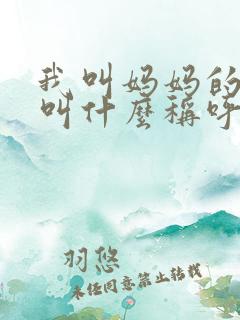 我叫妈妈的
叫什麼稱呼
羽悠
未经同意禁止转载